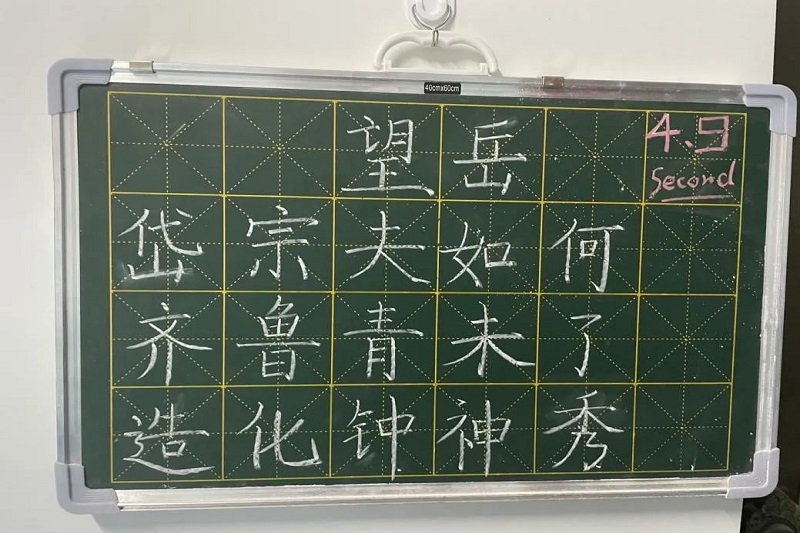 40cmx60cm
望岳
4.9
second
岱宗夫如何
齐鲁青未了
造化钟神秀